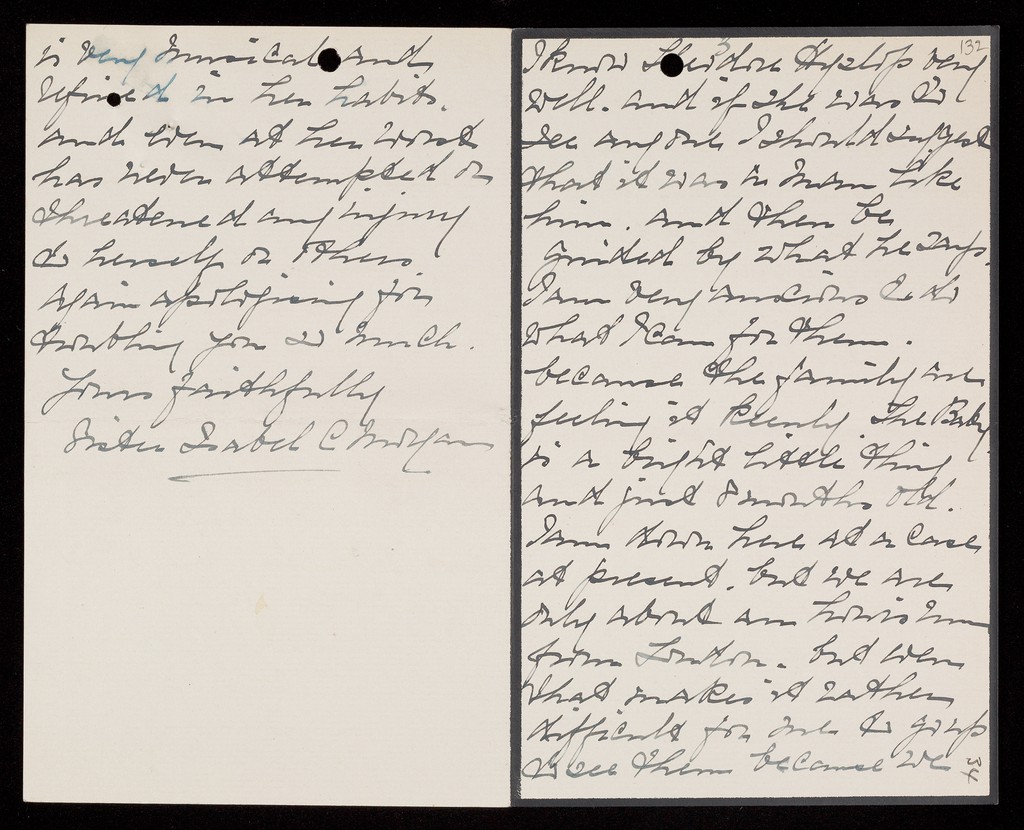 is very musical and
refined in her habits.
and even at her worst
has never attempted or
threatened any injury
to herself or others
again apologising for
troubling you so much.
Yours faithfully
Sister Isabel C Morgan
132
3
I know Theodore Hyslop very
well. and if she was to
see anyone I should suggest
that it was a man like
him. and then be
guided by what he says.
I am very anxious to do
what I can for them.
because the family are
feeling it keenly The Baby
is a bright little thing
and just 8 months old.
I am down here at a case
at present. but we are
only about an hours run
from London. but even
that makes it rather
difficult for me to go up
to see them because we
34